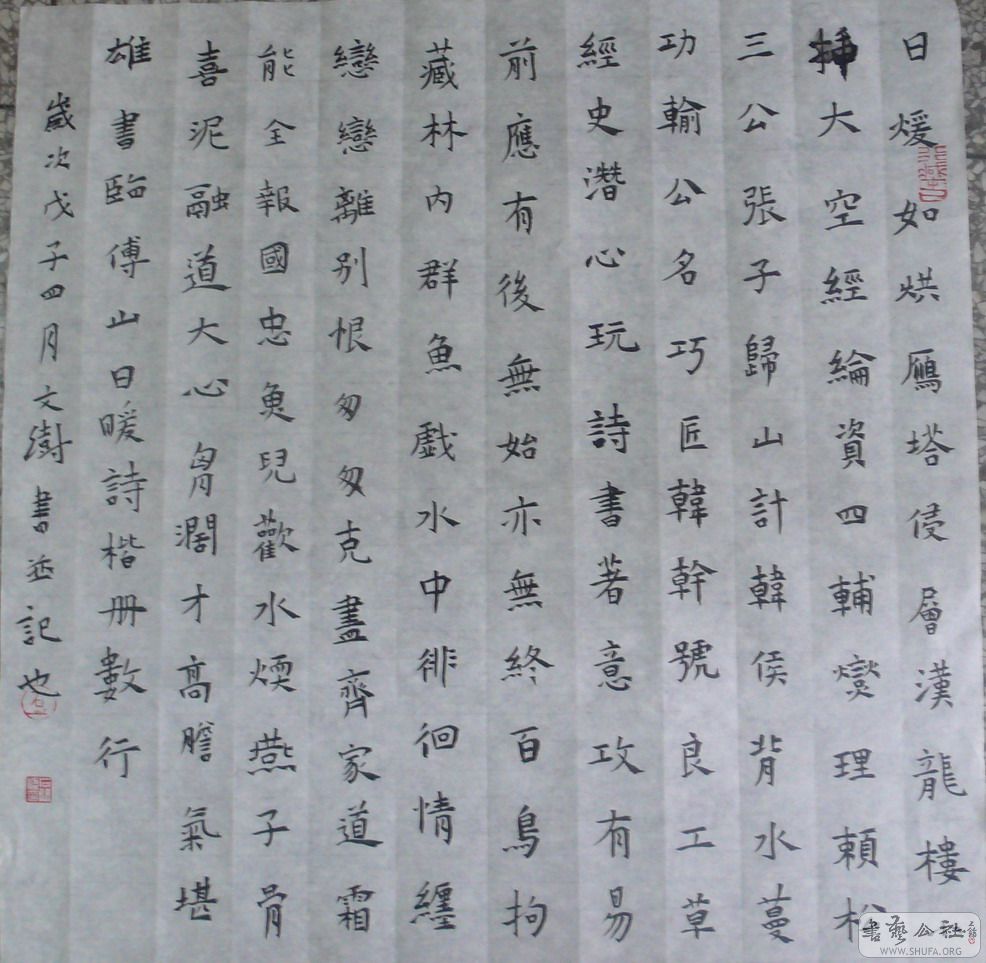 日煖如烘鴈塔侵層漢龍樓
挿大空經綸資四輔燮理賴松
三公張子歸山計韓侯背水蔓
功輸公名巧匠韓幹號良工草
經史潛心玩詩書著意攻有易
前應有後無始亦無終百鳥拘
藏林内群魚戲水中徘徊情纏
戀戀離别恨匆匆克盡齊家道霜
能全報國忠魚兒歡水煗燕子骨
喜泥融道大心胷濶才高膽氣堪
雄書臨傅山日暖詩楷册數行
歲次戊子四月文澍書并記也
書藝公社
WWW.SHUFA.ORG